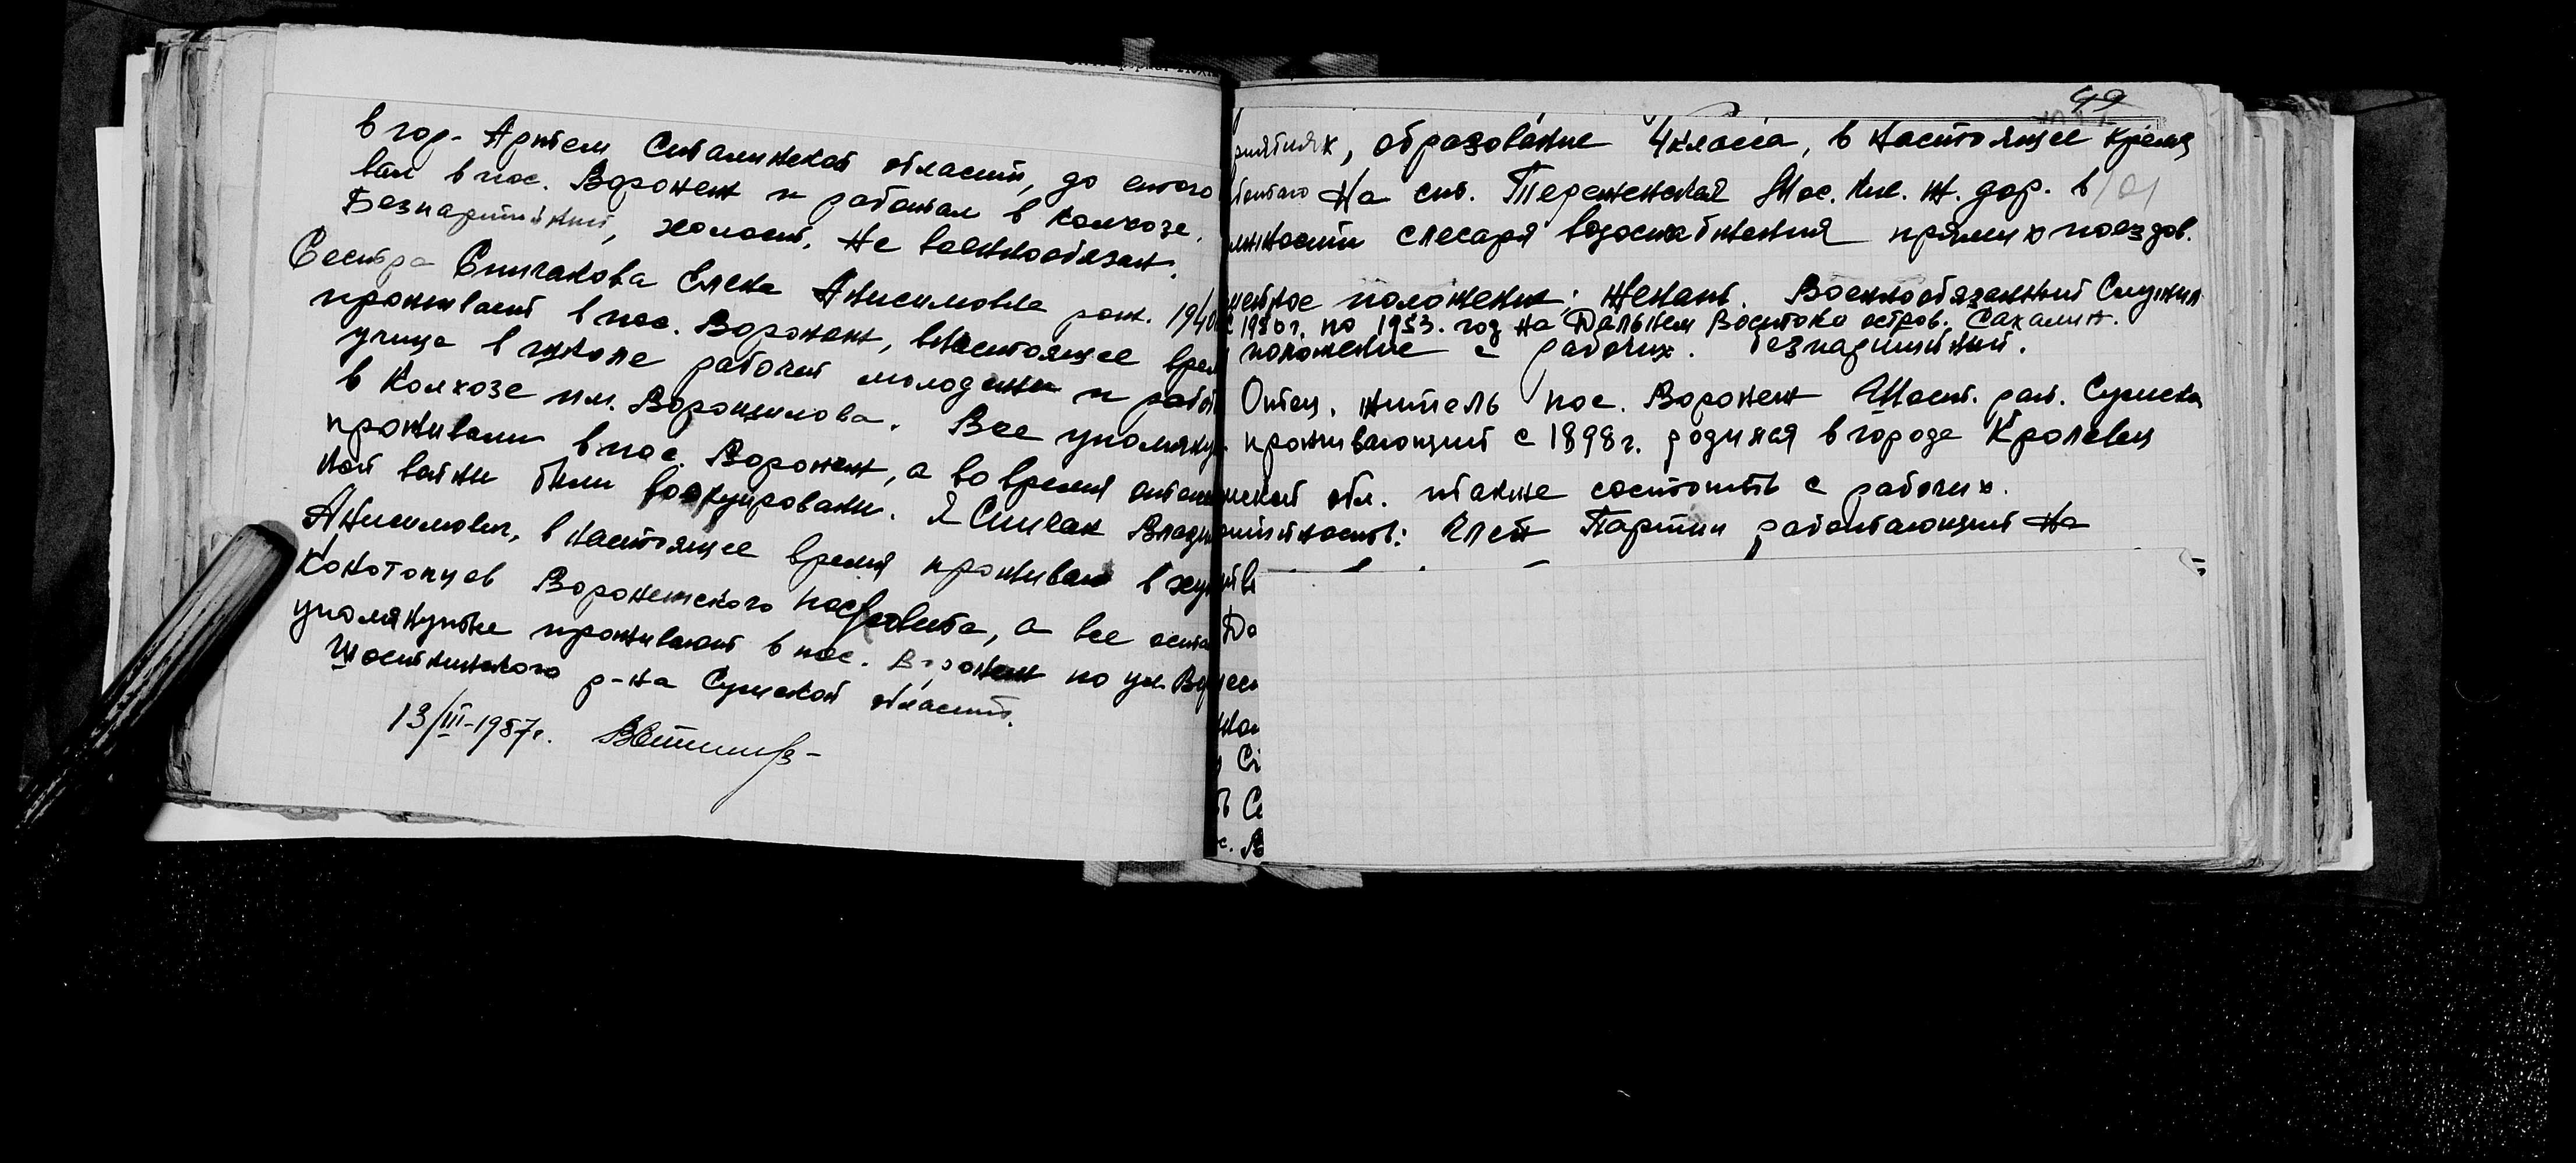 в гор. Артем Сталинской области, до етого
вал в пос. Воронеж и работал в колхозе.
Безпартийний, холост, не военнообязан.
Сестра Спичакова Елена Анисимовна рож. 1940
проживает в пос. Воронеж, в настоящее врем
учице в школе рабочей молодежи и работ
в колхозе им. Ворошилова. Все упомяну
проживали в пос. Воронеж, а во время отече
ной войни били воокупировани. Я Спичак Влади
Анисимович, в настоящее время проживаю в ху
Конотопцев Воронежского поссовета, а все оста
упомянутые проживают в пос. Воронеж по ул. Во
Шосткинского р-на Сумской области.
13/III-1957г.
49
риятиях, образование 4 класса, в настоящее время
ботаю на ст. Тереженская Мос. Кие. ж. дор. в
лжности слесаря водоснабжения прямих поездов.
мейное положение: женат. Военнообязанный Служил
с 1950 г. по 1953. год на Дальнем Востоке остров. Сахалин.
положение с рабочих. безпартийний.
Отец, житель пос. Воронеж Шост. рай. Сумска
проживающий с 1898 г. родился в городе Кролевец
мской обл. также состоить с рабочих.
ртийность: Член Партии работающий на